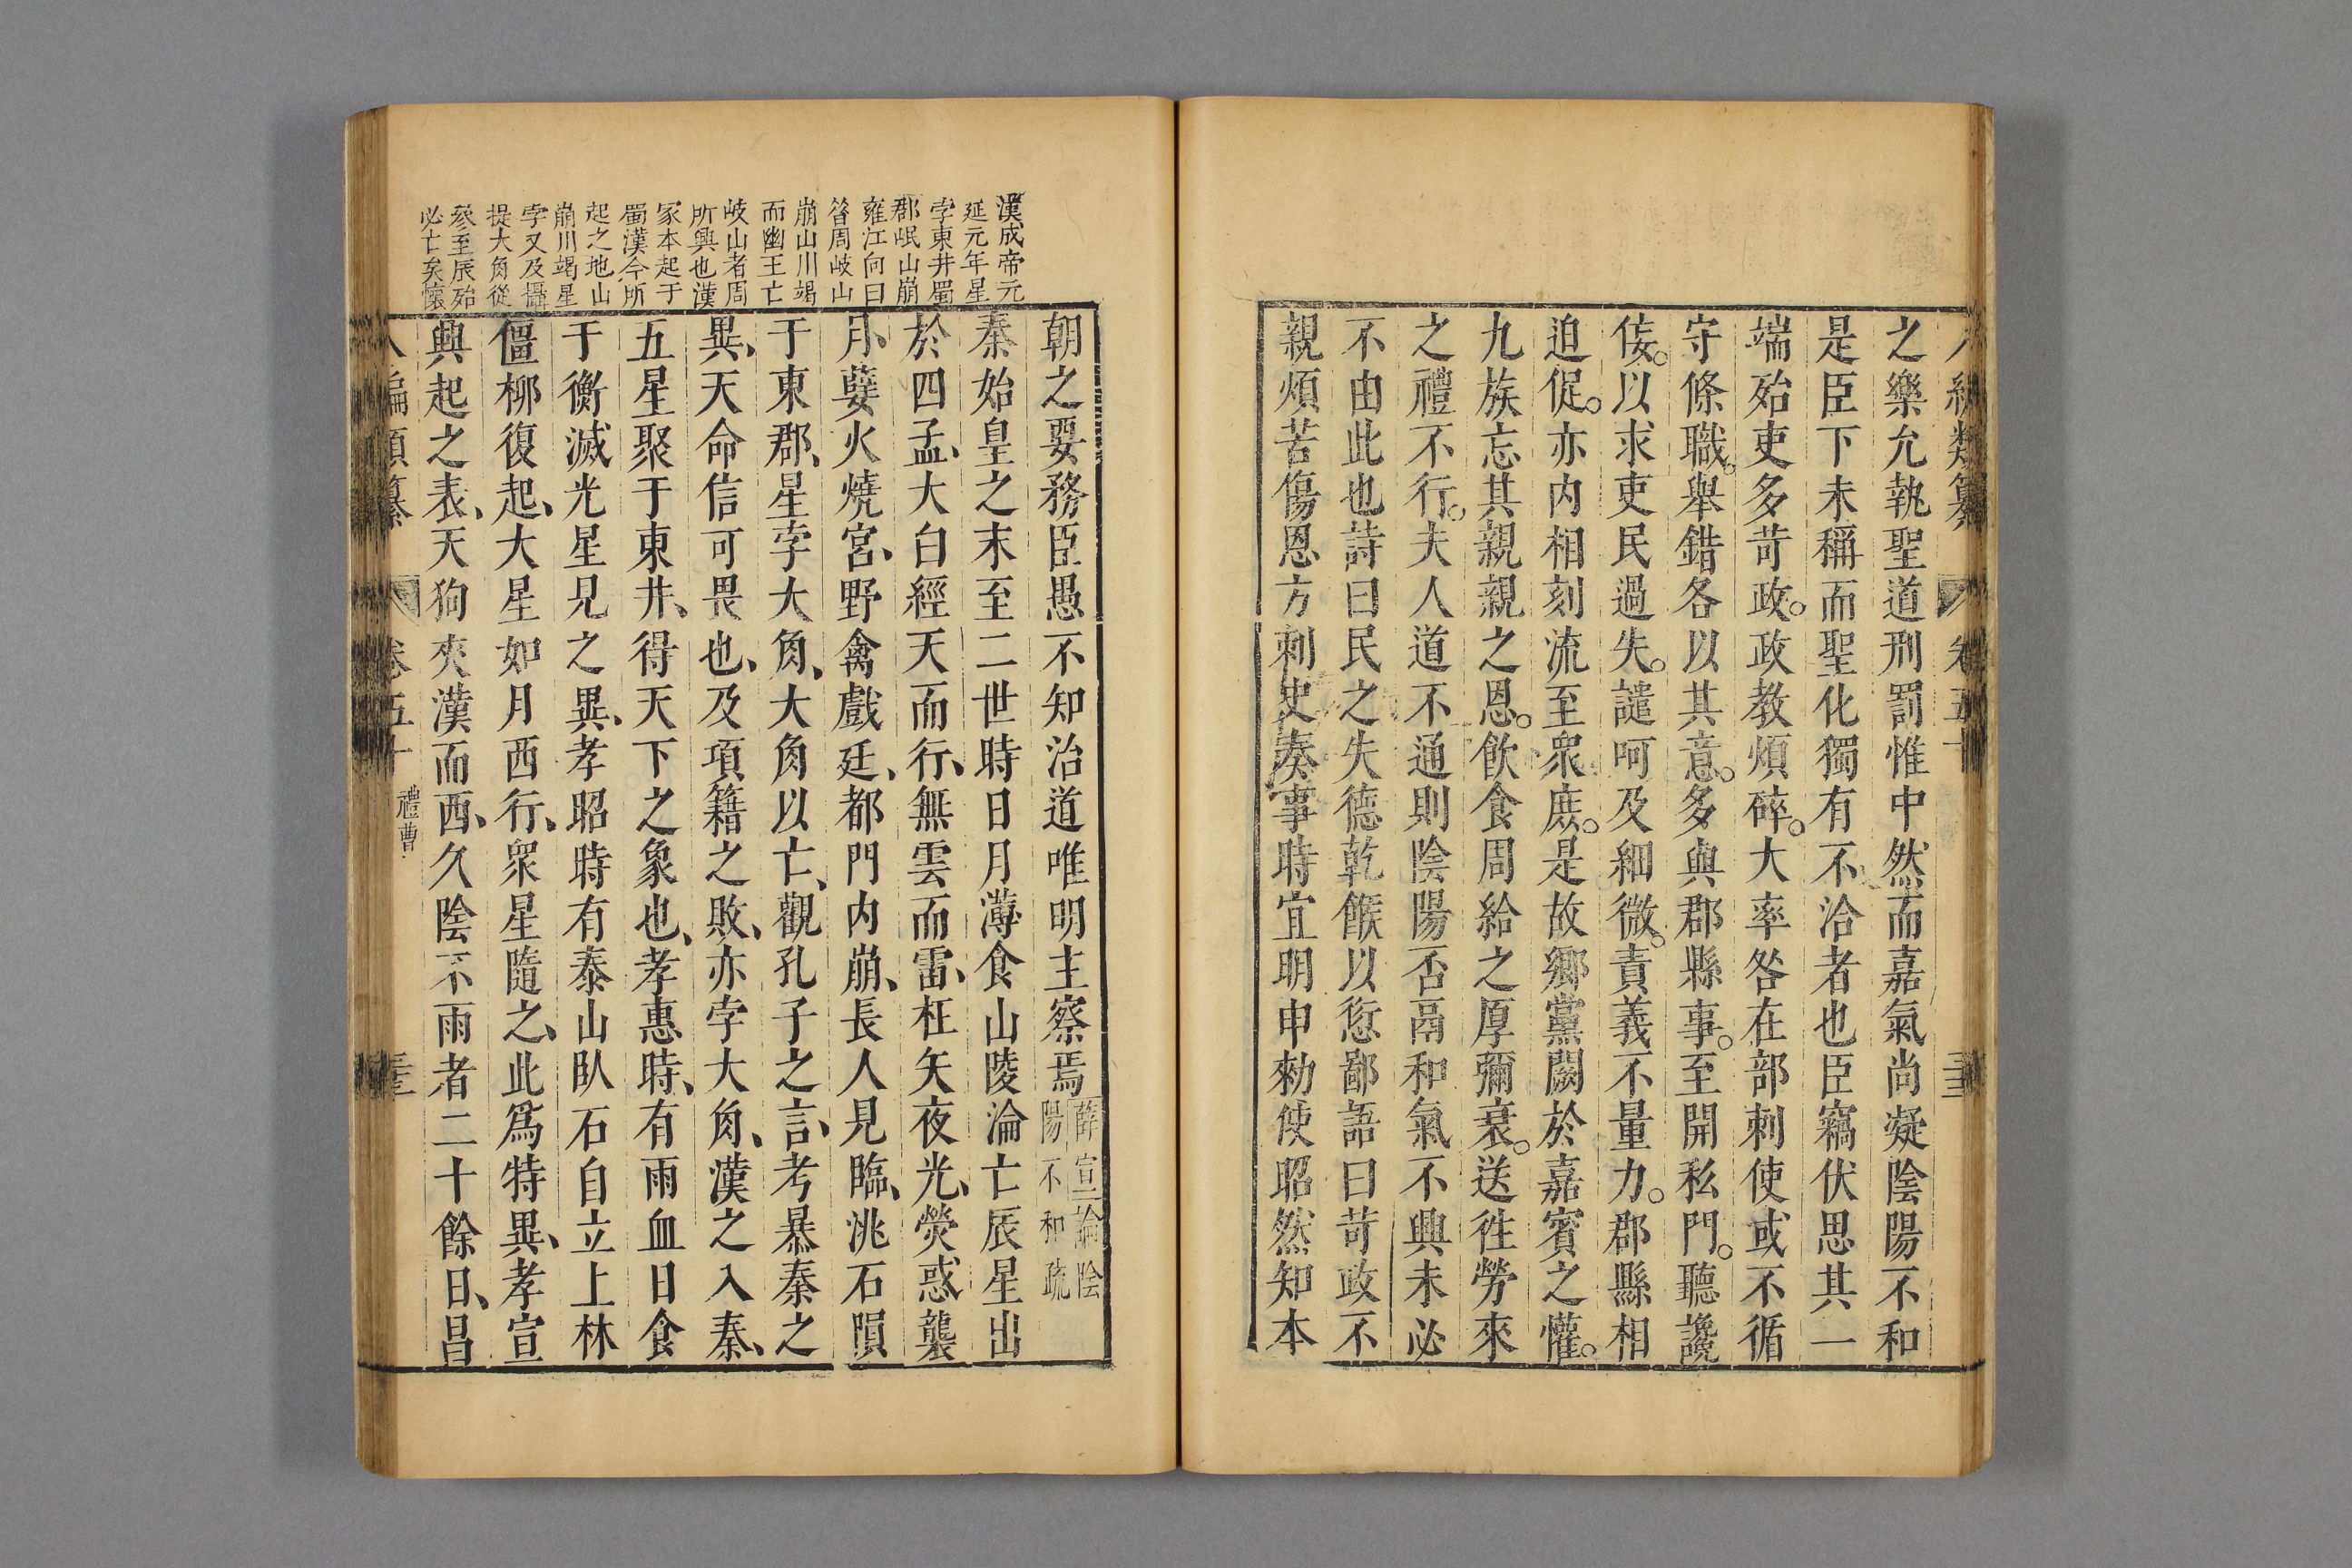 八編類纂 卷五十 三三
之樂允執聖道刑罰惟中然而嘉氣尚凝陰陽不和
是臣下未稱而聖化獨有不洽者也臣竊伏思其一
端殆吏多苛政。政教煩碎。大率咎在部刺使或不循
守條職。舉錯各以其意。多與郡縣事。至開私門。聽讒
佞。以求吏民過失。譴呵及細微。責義不量力。郡縣相
迫促。亦内相刻流至眾庶。是故鄉黨闕於嘉賓之懽。
九族忘其親親之恩。飲食周給之厚彌衰。送徃勞來
之禮不行。夫人道不通則陰陽否鬲和氣不興未必
不由此也詩曰民之失德乾餱以愆鄙語曰苛政不
親煩苦傷恩方刺史奏事時宜明申勑使昭然知本
漢成帝元
延元年星
孛東井蜀
郡岷山崩
雍江向曰
昝周岐山
崩山川竭
而幽王亡
岐山者周
所興也漢
冢本起于
蜀漢今所
起之地山
崩川竭星
孛又及攝
提大角從
叅至辰殆
必亡矣懷
朝之要務臣愚不知治道唯明主察焉薛宣論陰陽不和疏
秦始皇之末至二世時日月薄食山陵淪亡辰星出
於四孟、大白經天而行、無雲而雷、枉矢夜光、熒惑襲
月、孽火燒宮、野禽戲廷、都門内崩、長人見臨、洮石隕
于東郡、星孛大角、大角以亡、觀孔子之言、考暴秦之
異、天命信可畏也、及項籍之敗、亦孛大角、漢之入秦、
五星聚于東井、得天下之象也、孝惠時、有雨血日食
于衡滅光星見之異、孝昭時有泰山臥石自立上林
僵柳復起、大星如月西行、眾星隨之、此爲特異、孝宣
興起之表、天狗夾漢而西、久陰不雨者二十餘日、昌
八編類纂 卷五十 禮曹 三三